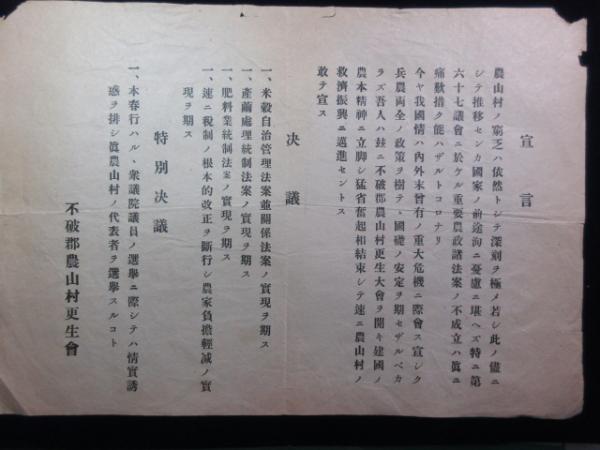 宣言
農山村ノ窮乏ハ依然トシテ深刻ヲ極メ若シ此ノ儘ニ
シテ推移センカ國家ノ前途洵ニ憂慮ニ堪ヘズ特ニ第
六十七議會ニ於ケル重要農政諸法案ノ不成立ハ眞ニ
痛歎措ク能ハザルトコロナリ
今ヤ我國情ハ內外未曾有ノ重大危機ニ際會ス宣シク
兵農両全ノ政策ヲ樹テ、國礎ノ安定ヲ期セザルベカ
ラズ吾人ハ玆ニ不破郡農山村更生大會ヲ開キ建國ノ
農本精神ニ立脚シ猛省奮起相結束シテ速ニ農山村ノ
救濟振興ニ邁進セントス
敢テ宣ス
決議
一、米穀自治管理法案並關係法案ノ實現ヲ期ス
一、產繭處理統制法案ノ實現ヲ期ス
一、肥料業統制法案ノ實現ヲ期ス
一、速ニ稅制ノ根本的改正ヲ斷行シ農家負擔輕減ノ實
現ヲ期ス
特別決議
一、本春行ハル、衆議院議員ノ選擧ニ際シテハ情實誘
惑ヲ排シ眞農山村ノ代表者ヲ選擧スルコト
不破郡農山村更生會